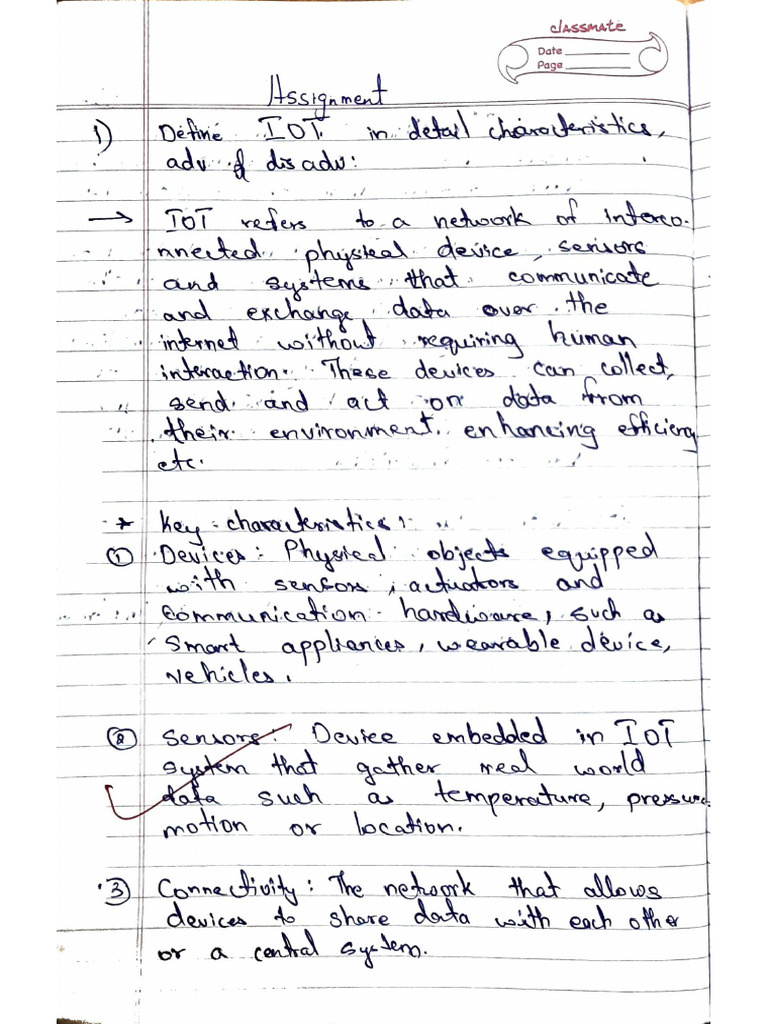 classmate
Date
Page
Assignment
1) Define IOT in detail characteristics,
adv & disadv:
→ IOT refers to a network of interco-
nnected physical device, sensors
and systems that communicate
and exchange data over the
internet without requiring human
interaction. These devices can collect,
send and act on data from
their environment, enhancing efficiency
etc.
* Key characteristics:
① Devices: Physical objects equipped
with sensors, actuators and
communication hardware, such as
smart appliances, wearable device,
vehicles.
② Sensors: Device embedded in IOT
system that gather real world
data such as temperature, pressure,
motion or location.
③ Connectivity: The network that allows
devices to share data with each other
or a central system.